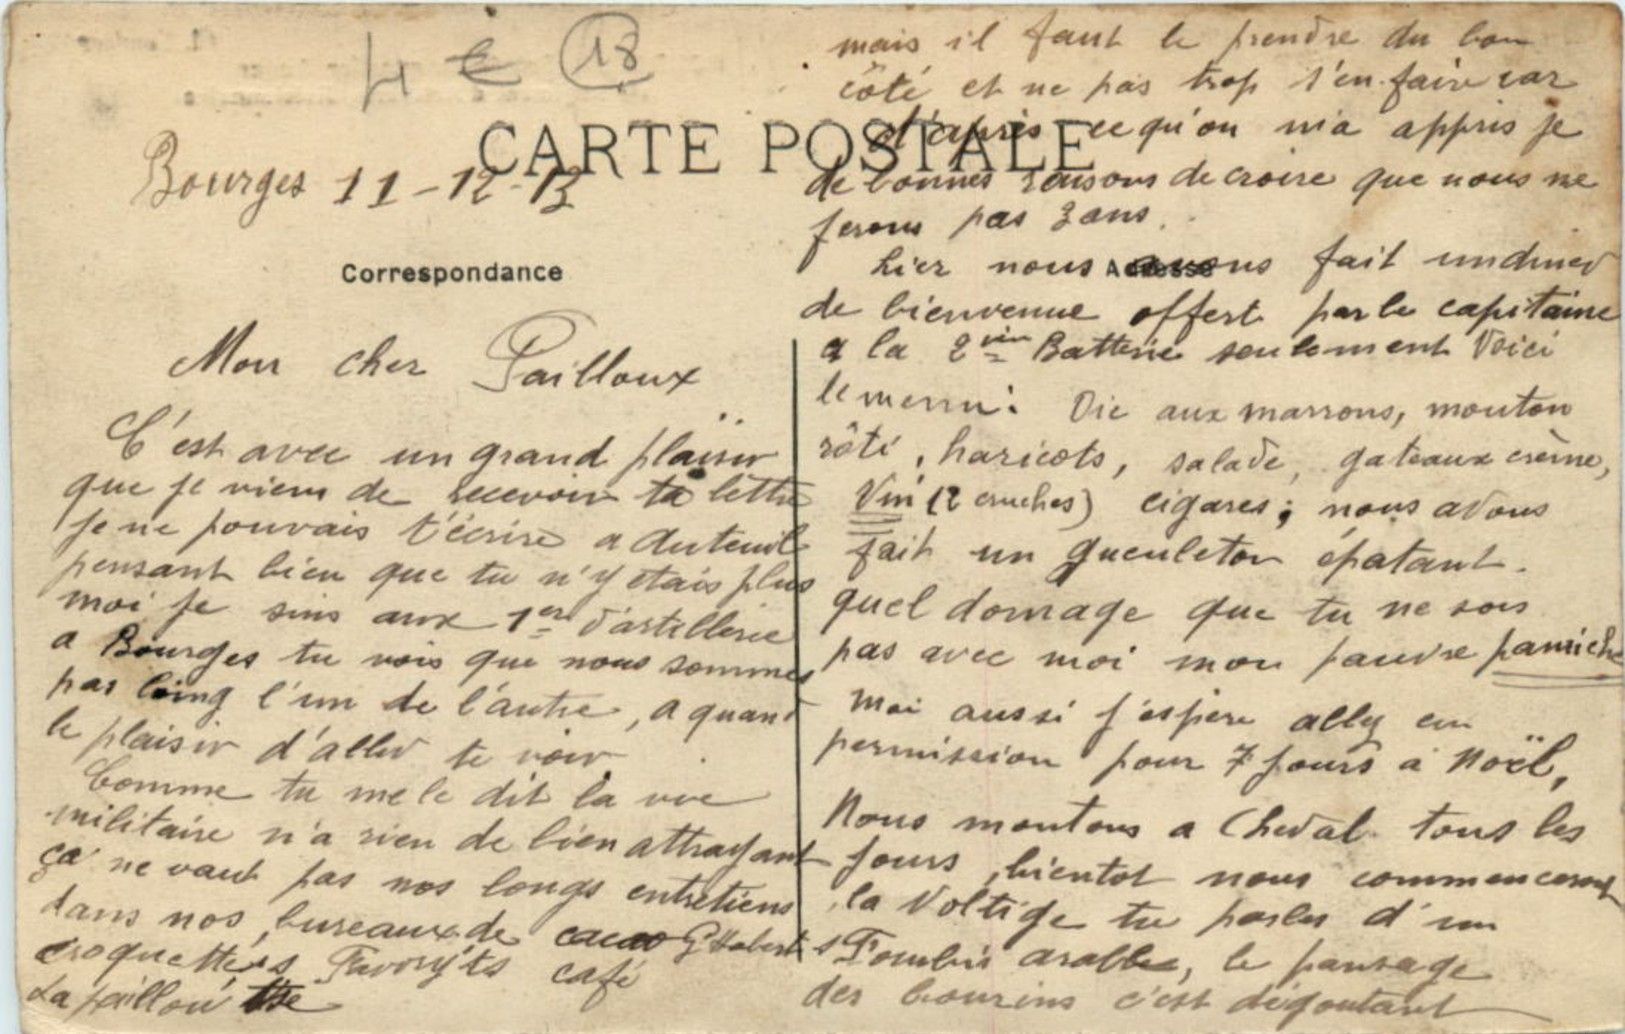 4 € 18
CARTE POSTALE
Bourges 11-12-13
Correspondance
Mon cher Pailloux
C'est avec un grand plaisir
que je viens de recevoir ta lettre
je ne pouvais t'écrire a Auteuil
pensant bien que tu n'y etais plus
moi je suis aux 1er d'artillerie
a Bourges tu vois que nous sommes
pas loing l'un de l'autre, a quand
le plaisir d'aller te voir
Comme tu me le dit la vie
militaire n'a rien de bien attrayant
ça ne vaut pas nos longs entretiens
dans nos bureaux de cacao
croquettes Favorits café
La paillou
mais il faut le prendre du bon
côté et ne pas trop s'en faire car
d'apris ce qu'on m'a appris je
de bonnes raisons de croire que nous ne
ferons pas 3 ans.
Adresse
hier nous avons fait un diner
de bienvenue offert par le capitaine
a la 2 Batterie seulement Voici
le menu: Oie aux marrons, mouton
rôti, haricots, salade, gateaux crème,
Vin (2 cruches) cigares; nous avons
fait un gueuleton épatant.
quel domage que tu ne sois
pas avec moi mon pauvre
moi aussi j'espère allez en
permission pour 7 jours à Noël,
Nous montons a Cheval tous les
jours, bientot nous commencerons
la Voltige tu parles d'un
arabe, le pansage
des bourins c'est dégoutant